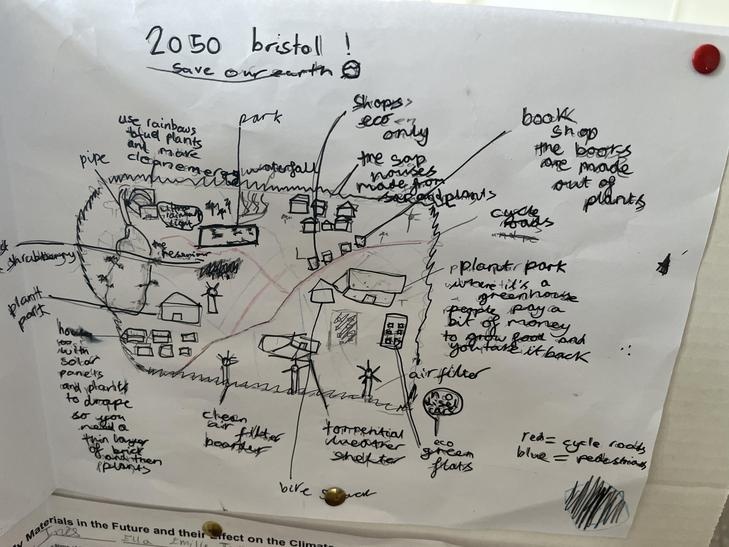 2050 bristol !
save our earth
use rainbows
to fuel plants
and make
park
waterfall
pipe
shops
eco
only
book
shop
the books
are made
out of
plants
the sap
houses
made from
plants
cycle
roads
the reservoir
shrubbery
plant
park
plant park
where it's a
greenhouse
people pay a
bit of money
to grow food and
you take it back
with
solar
panels
and plants
to drape
so you
need a
thin layer
of brick
and then
plants
air filter
clean
air filter
boarder
torrential
weather
shelter
eco
green
flats
red = cycle roads
blue = pedestrians
bike
Materials in the Future and their Effect on the Climate
Ella